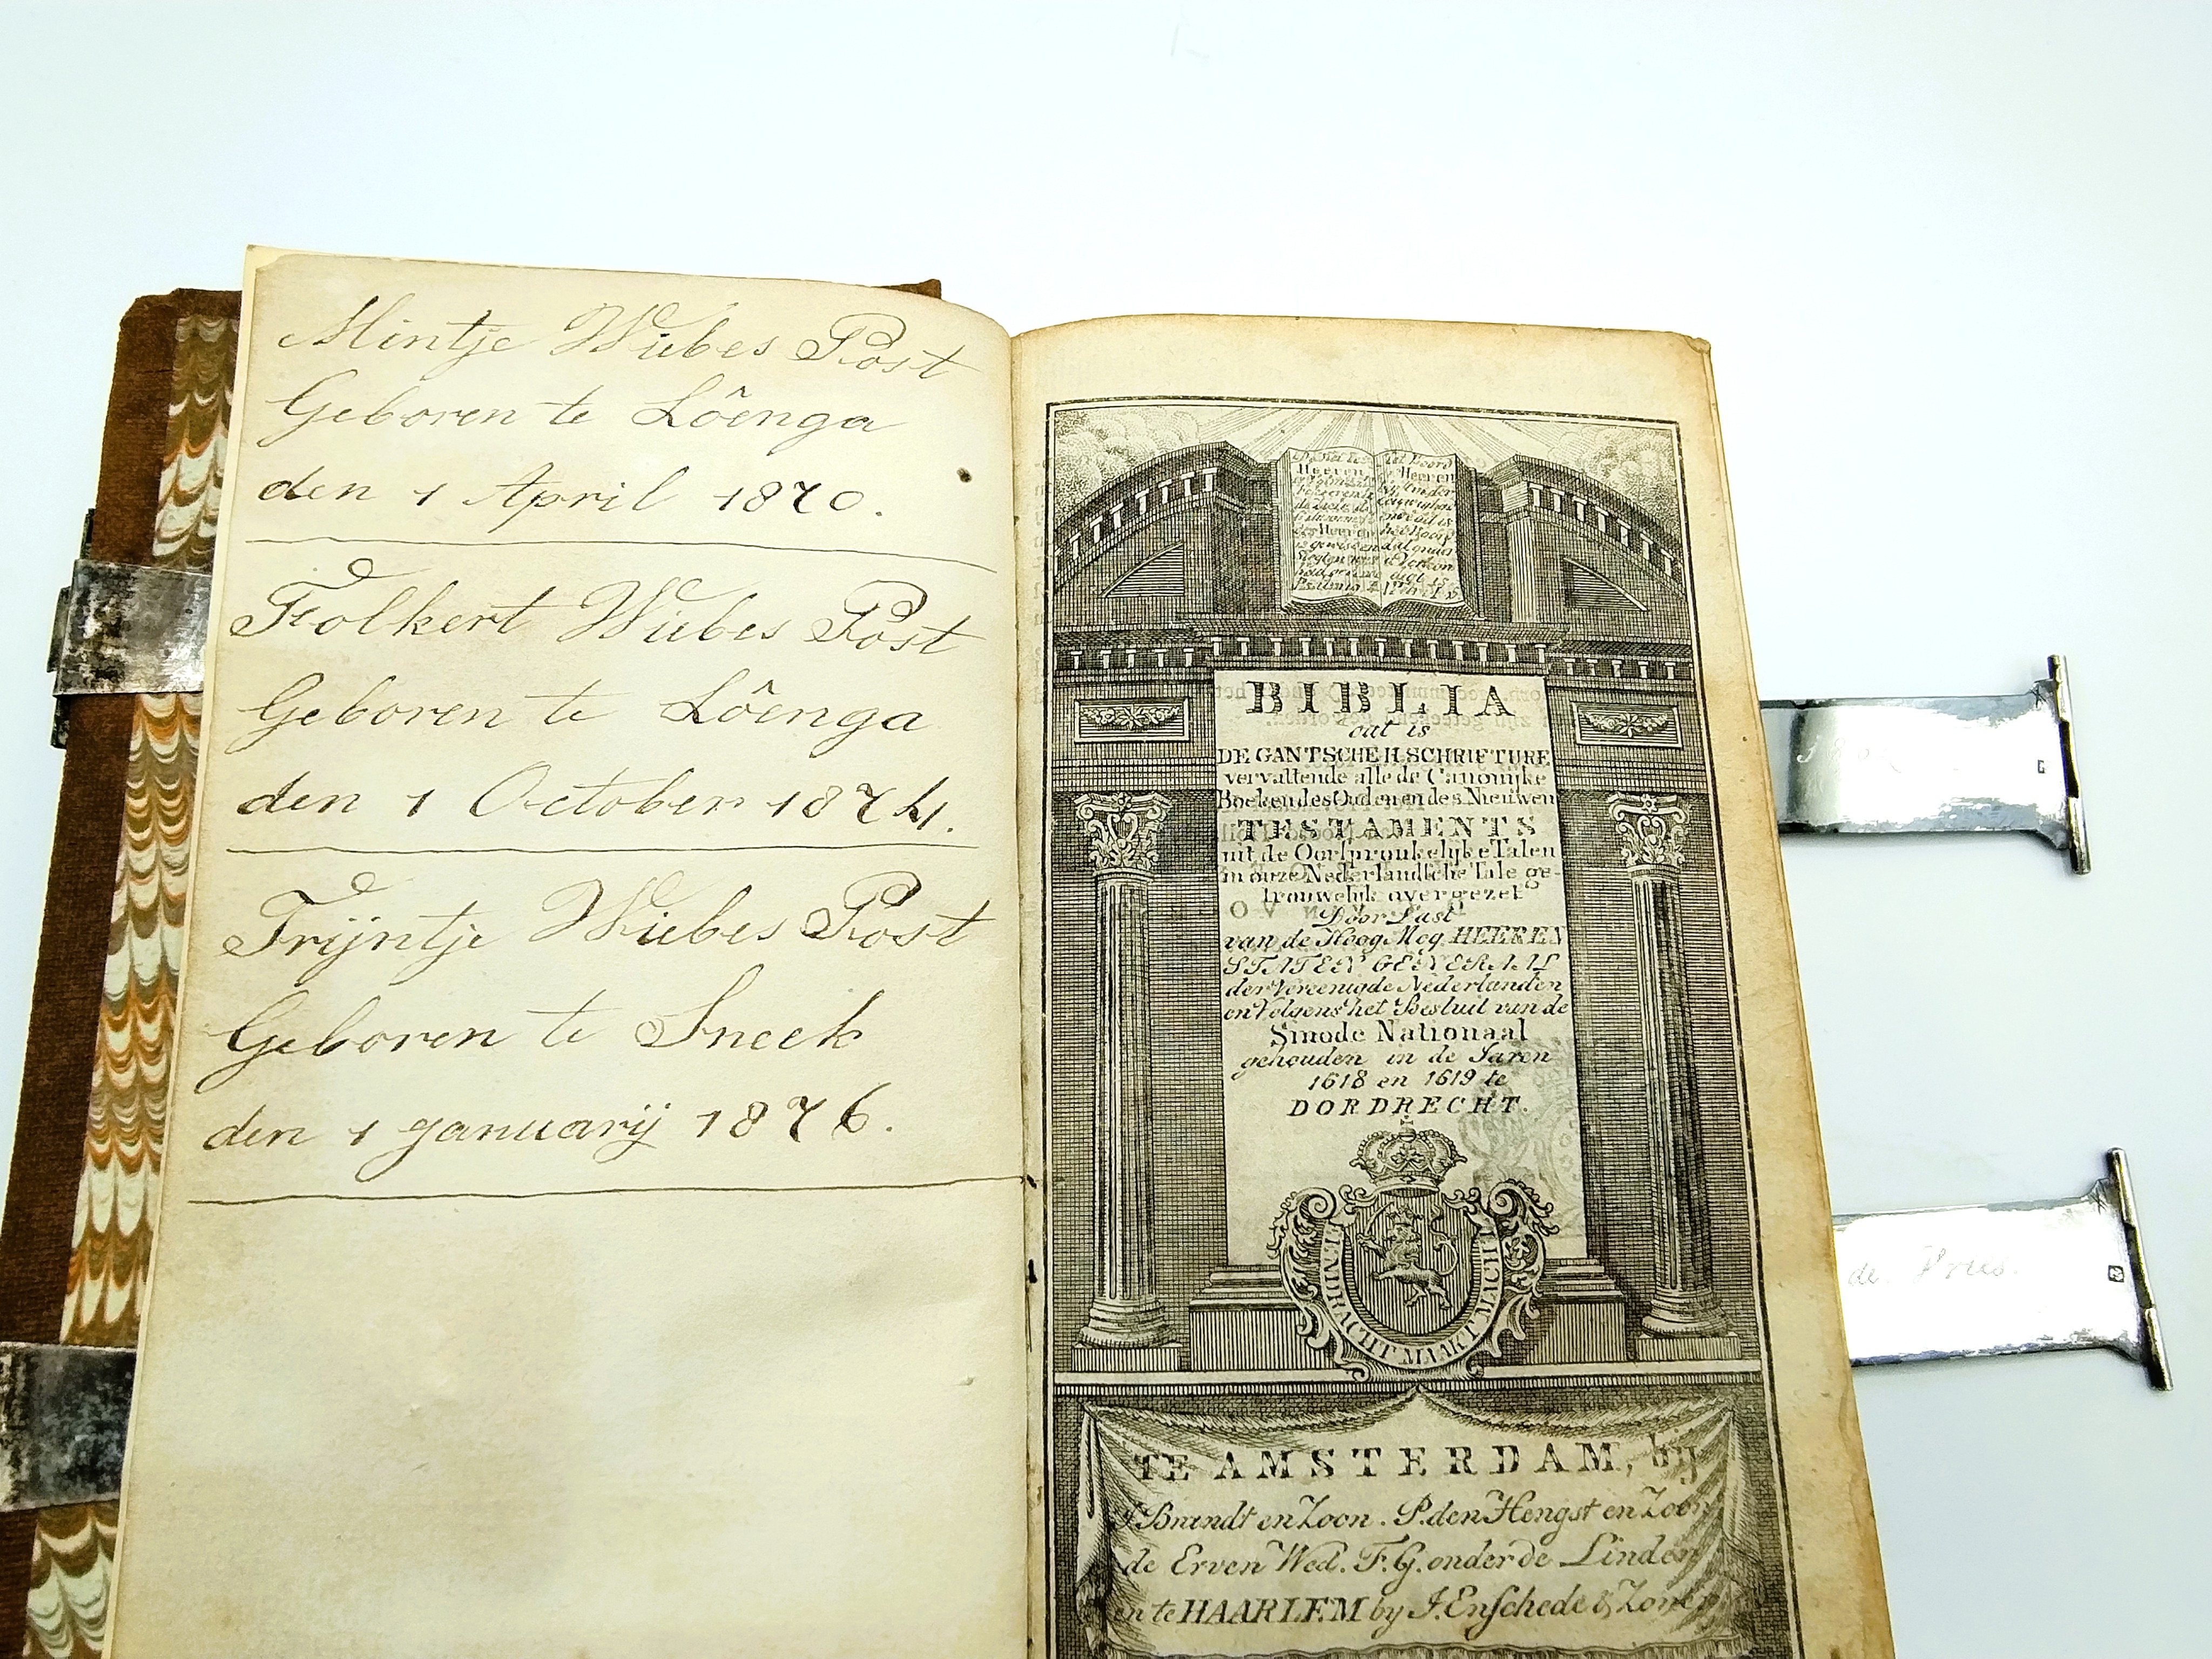 Mintje Wiebes Post
Geboren te Lôenga
den 1 April 1870.
Folkert Wiebes Post
Geboren te Lôenga
den 1 October 1874.
Trijntje Wiebes Post
Geboren te Sneek
den 1 Januarij 1876.
Heeren
Heeren
BIBLIA
dat is
DE GANTSCHE H. SCHRIFTURE
vervattende alle de Canonijke
Boeken des Ouden en des Nieuwen
TESTAMENTS
uit de Oorspronkelijke Talen
in onze Nederlandsche Tale ge-
trouwelijk overgezet
Door Last
van de Hoog Mog. HEEREN
STATEN GENERAAL
der Vereenigde Nederlanden
en Volgens het Besluit van de
Sinode Nationaal
gehouden in de Jaren
1618 en 1619 te
DORDRECHT.
EENDRACHT MAAKT MACHT
TE AMSTERDAM, bij
J. Brandt en Zoon. P. den Hengst en Zoon
de Erven Wed. F. G. onder de Linden
en te HAARLEM by J. Enschede & Zonen
de Vries.